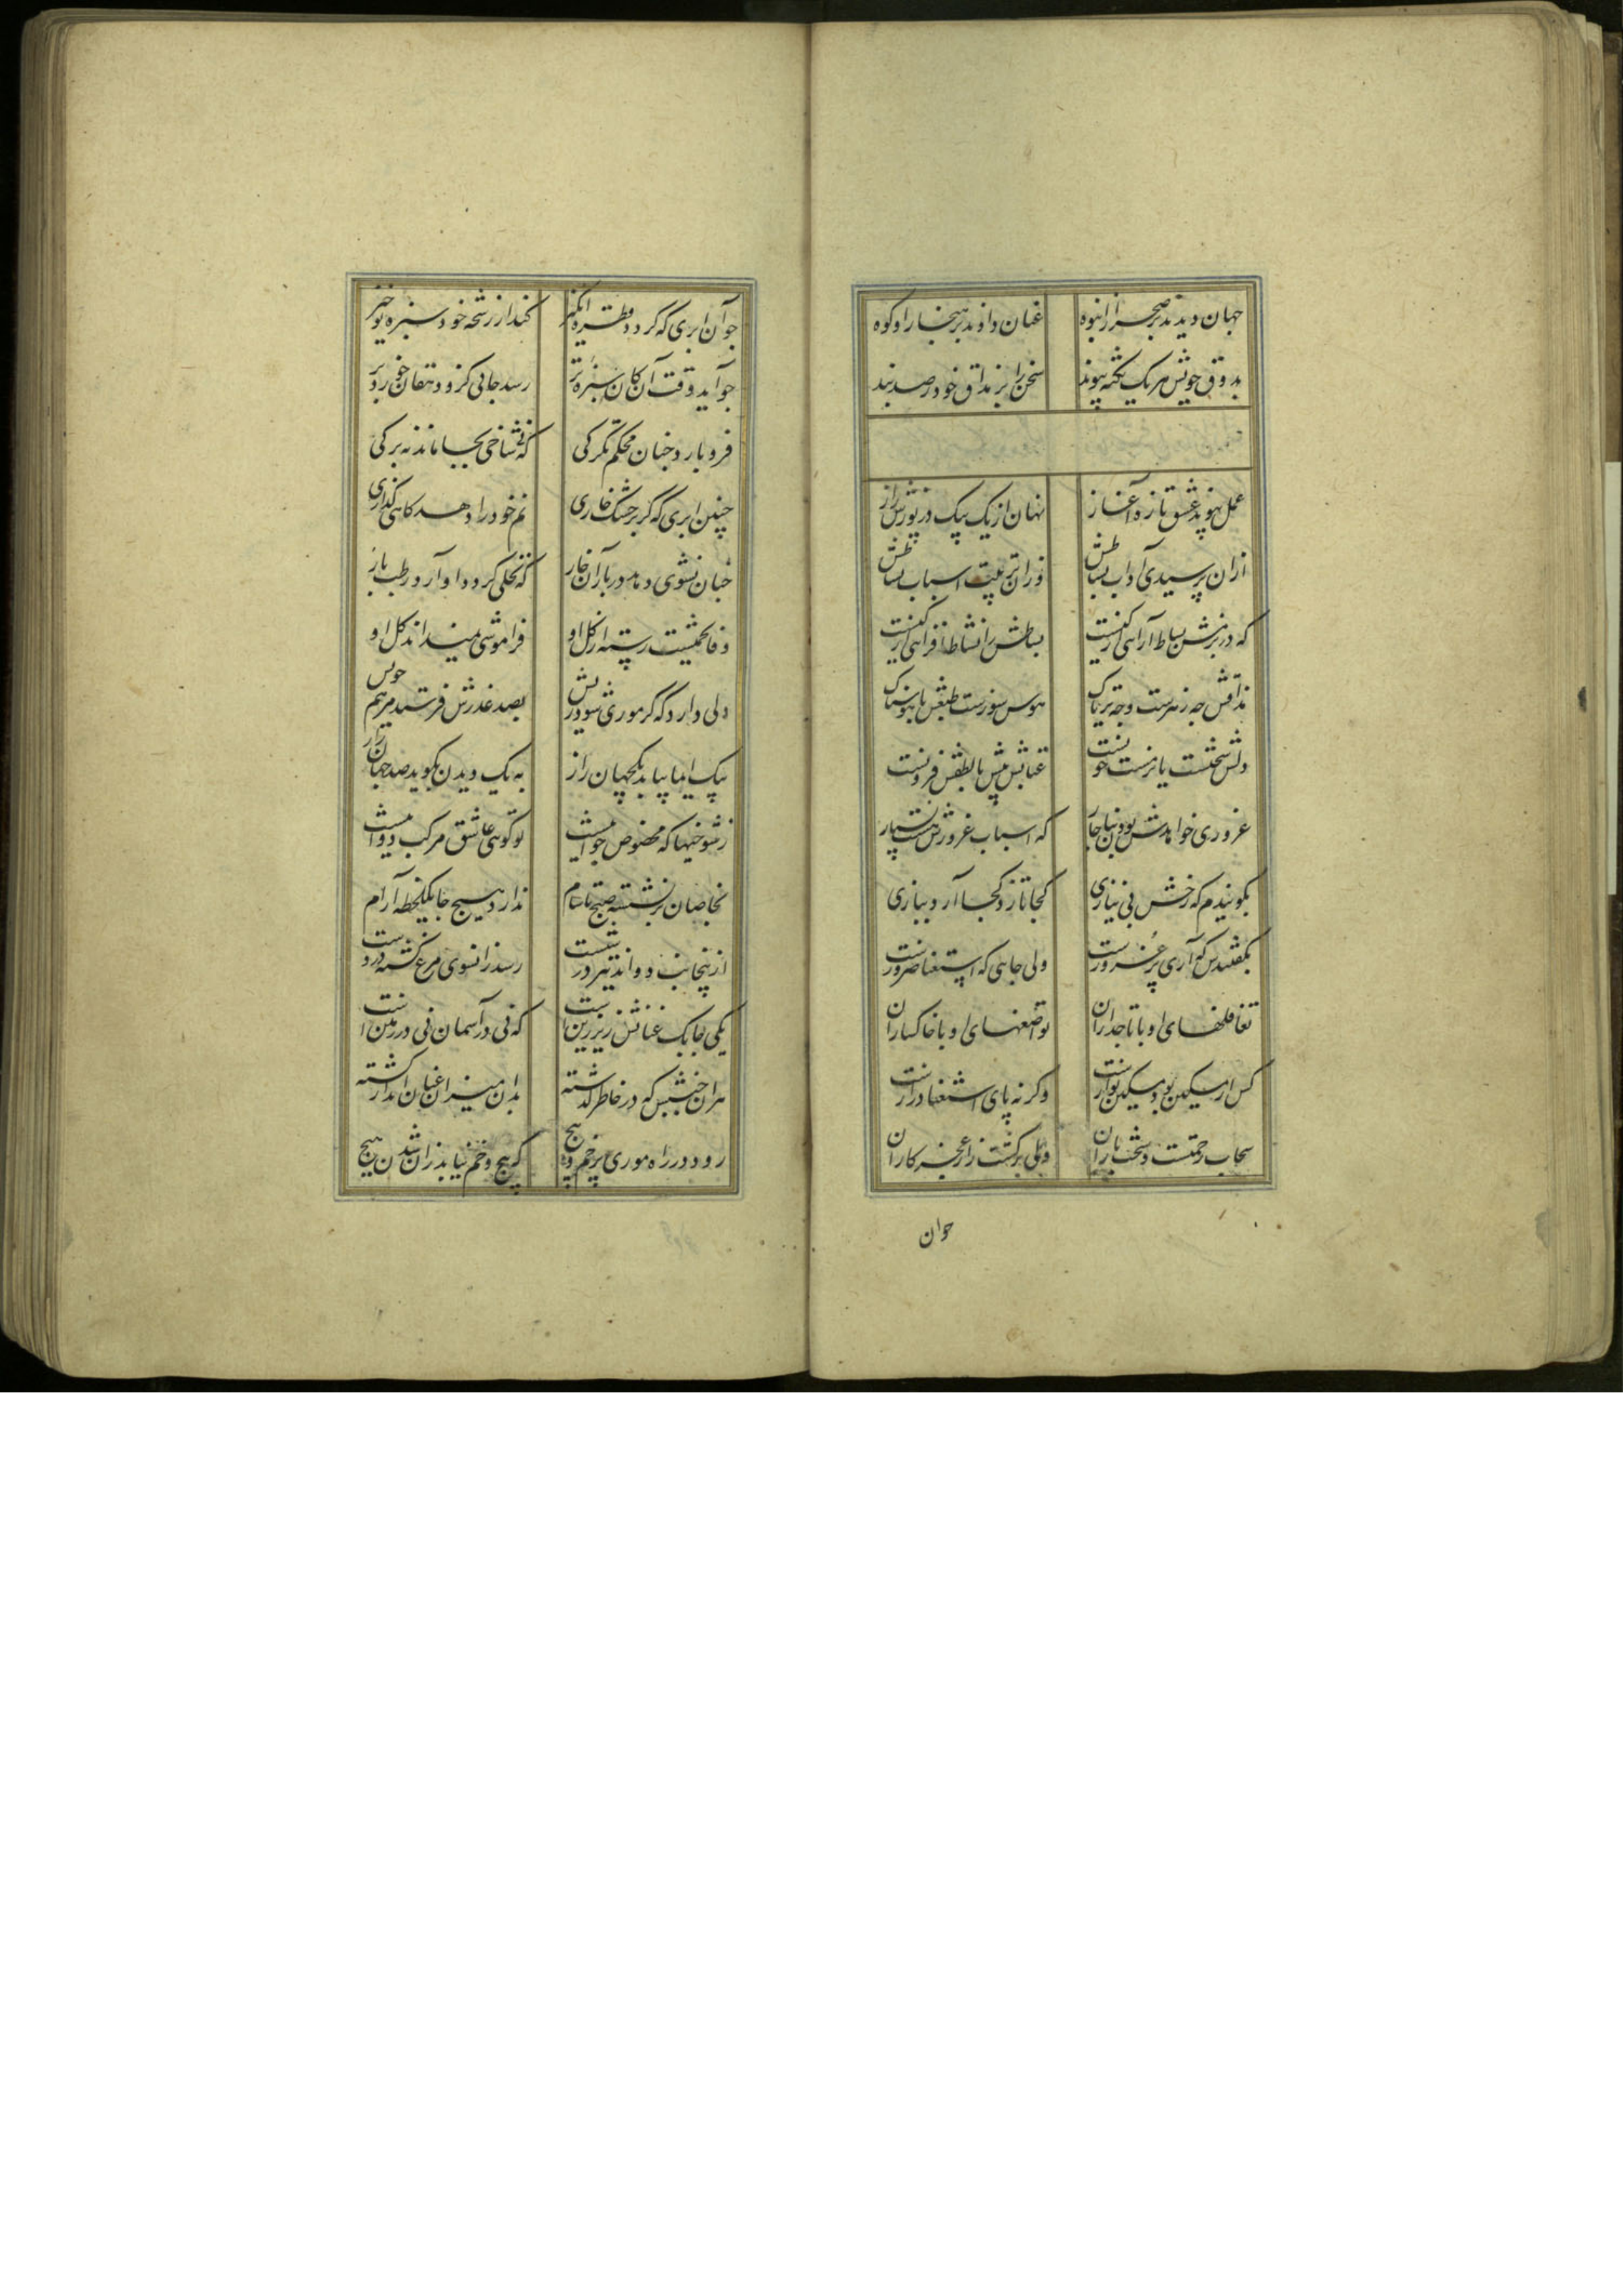 جهان دیدند بر صحرا ز انبوه
عنان دادند بر هنجار راه کوه
بذوق خویش هر یک نکته پیوند
سخن را بر مذاق خود رصد بند
عمل پیوند عشق تازه آغاز
نهان از یک بیک در پوزش راز
ازان پرسیدی آداب بساطش
وزان ترتیب اسباب نشاطش
که در بزمش بساط آرایی از کیست
بساطش را نشاط افزایی از کیست
مذاقش چه زهرست و چه تریاک
هوس سوزست طبعش یا هوسناک
دلش سختست یا نرمست خویست
عتابش بیش یا لطفش فزونست
غروری خواهدش بودن بناچار
که اسباب غرورش هست بسیار
بگوییدم که رخش بی نیازی
کجا تازد کجا آرد ببازی
بگفتندش که آری پر غرورست
ولی جایی که استغنا ضرورست
تغافلهای او با تاجداران
تواضعهای او با خاکساران
کس ار مسکین بود مسکین نوازست
وگرنه پای استغنا درازست
سحاب رحمتست و سخت باران
ولی بر کشت زار عجز کاران
جوان
جوآن ابری که گردد قطره انگیز
کند از رشحه خود سبزه نوخیز
جو آید وقت آن کان سبزه تر
رسد جائی کزو دهقان خورد بر
فرو بارد جنان محکم تگرگی
که نی شاخی بجا ماند نه برگی
چنین ابری که گر بر خشک خاری
نم خود را دهد گاهی گذاری
جنان نشوی دهد در باز آن خار
که نخلی گردد او آرد رطب بار
وفا تخمیست رسته از گل او
فراموشی نمیداند دل او
دلی دارد که گر موری شود ریش
بصد عذرش فرستد مرهم خویش
بیک ایما بیابد یکجهان راز
به یک دیدن بگوید صد جهان راز
ز شوخیها که مخصوص جوانیست
تو گویی عاشق مرکب دوانیست
بخاصان بر نشسته صبح تا شام
ندارد هیچ جا یکلحظه آرام
ازینجانب دواند تیر در شست
رسد زانسوی مرغ کشته در دست
یکی چابک عنانش زیر زین است
که نی در آسمان نی در زمین است
هر آن جنبش که در خاطر گذشته
بدان میزان عنان انداز گشته
رود در راه موری پر خم و پیچ
که پیچ و خم نیابد زان شدن هیچ